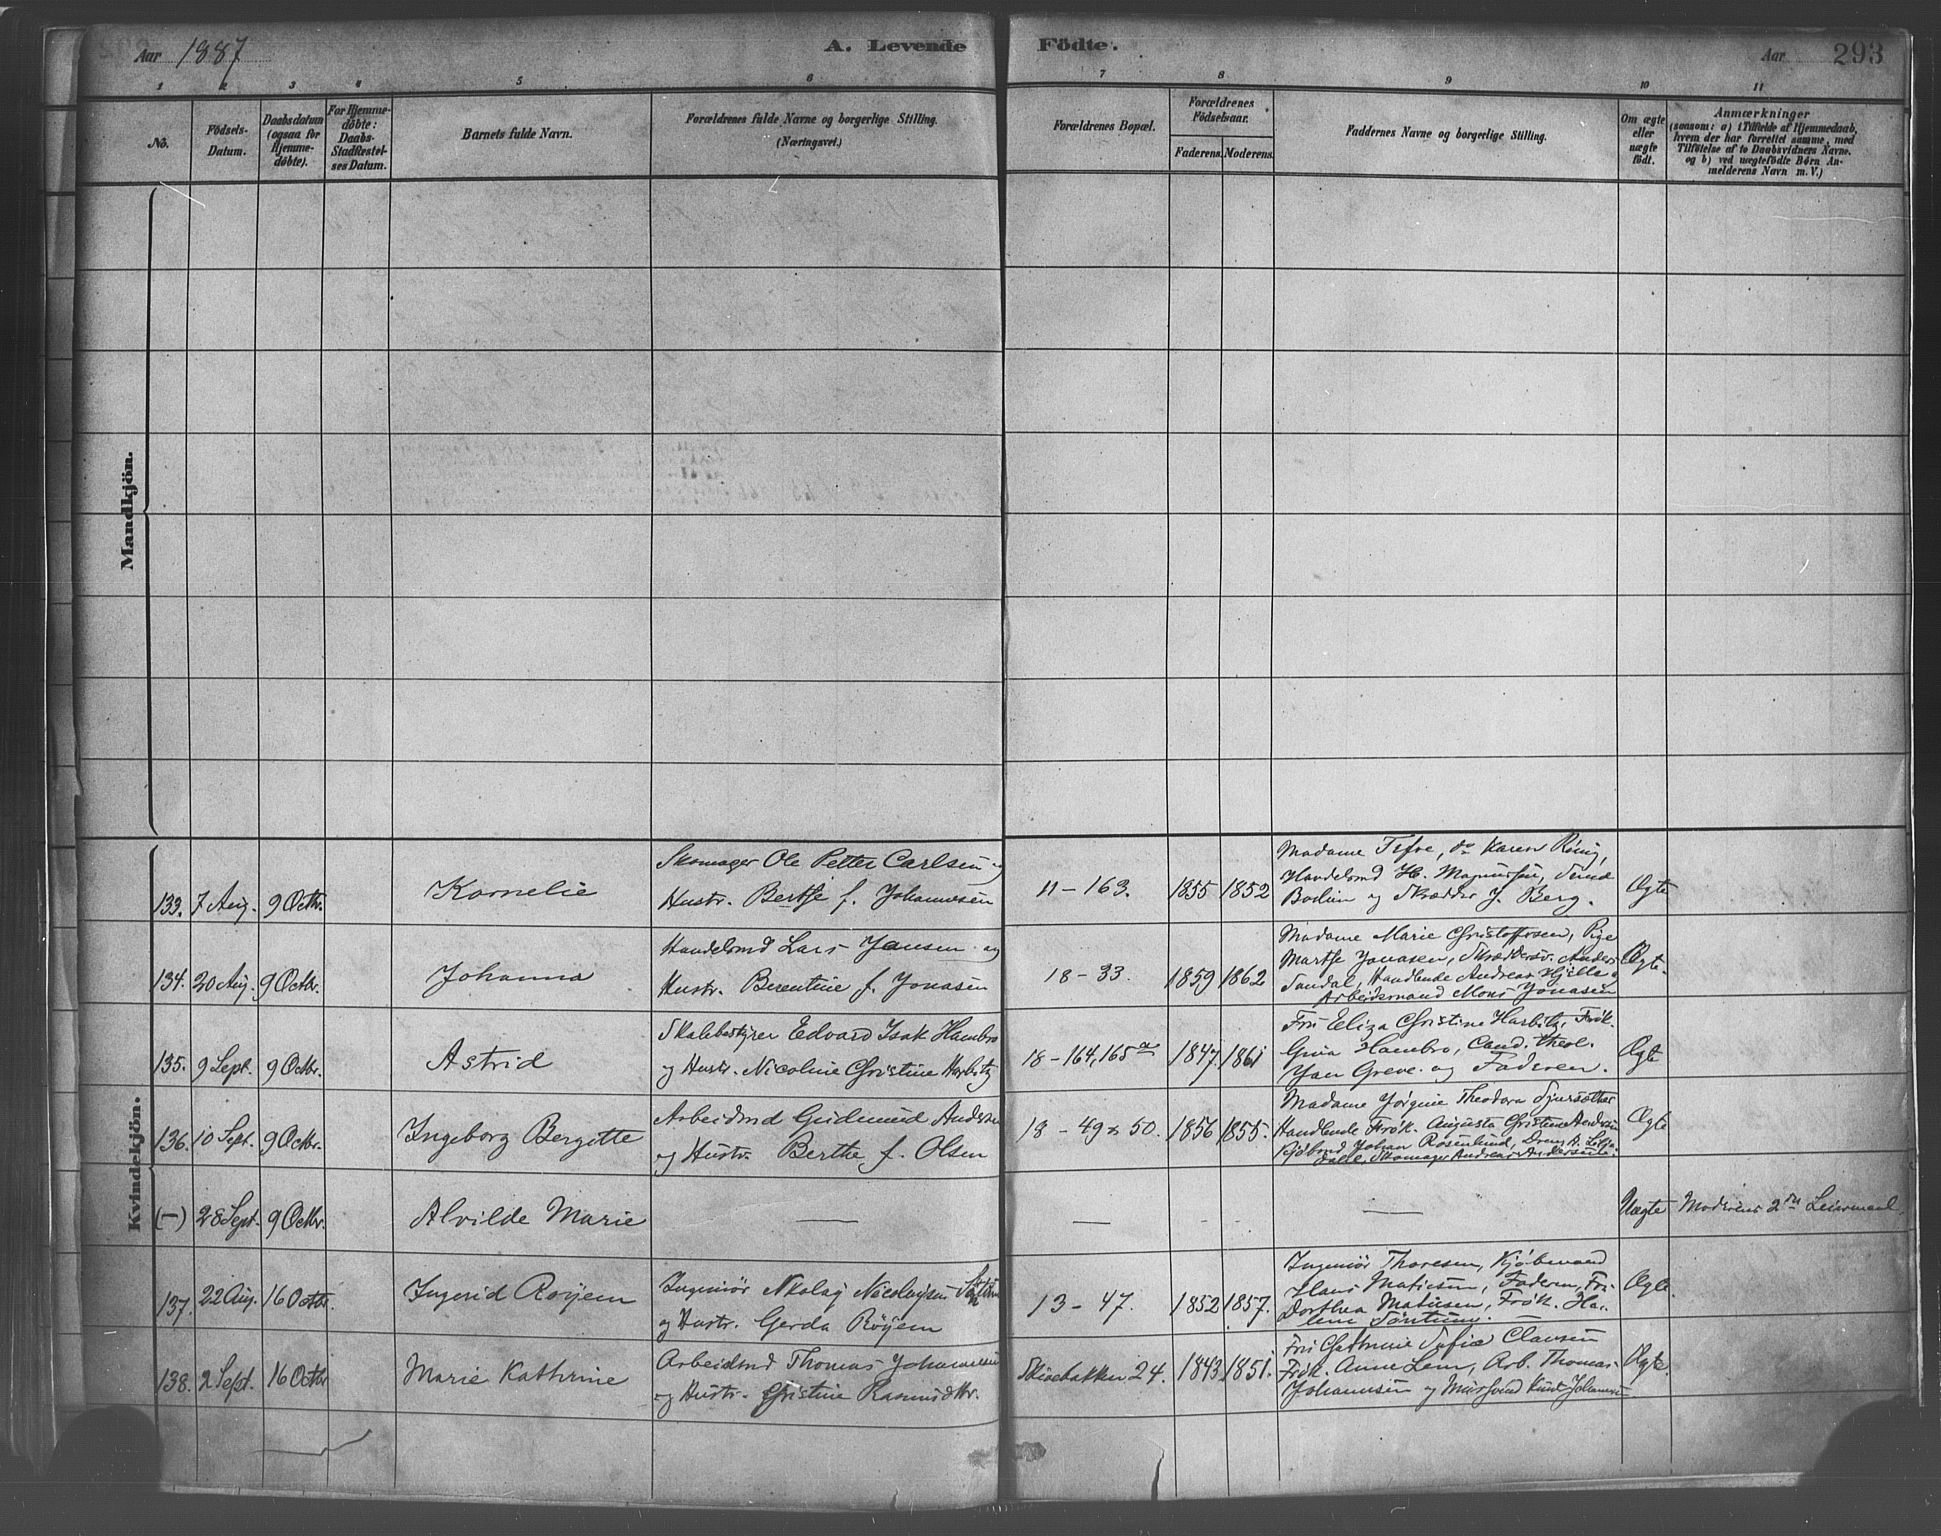 Aar 1887
A. Levende Födte.
Aar 293
1 2 3 4 5 6 7 8 9 10 11
No.
Födsels-
Datum.
Daabsdatum
(ogsaa for
Hjemme-
döbte).
For Hjemme-
döbte:
Daabs-
Stadfæstel-
ses Datum.
Barnets fulde Navn.
Forældrenes fulde Navne og borgerlige Stilling.
(Næringsvei.)
Forældrenes Bopæl.
Forældrenes
Födselsaar.
Faderens. Moderens.
Faddernes Navne og borgerlige Stilling.
Om ægte
eller
uægte
födt.
Anmærkninger
(saasom: a) i Tilfælde af Hjemmedaab,
hvem der har forrettet samme, med
Tilföielse af to Daabsvidners Navne.
og b) ved uægtefödte Börn An-
melderens Navn m. V.)
Mandkjön.
Kvindekjön.
133. 7 Aug. 9 Octbr.
Kornelie
Skomager Ole Petter Carlsen og
Hustr. Berthe f. Johannesen
11 - 163. 1855 1852
Madame Tefre, do Karen
Handelsmd H. Magnussen,
og Skrædder J. Berg.
Ægte
134. 20 Aug. 9 Octbr.
Johanna
Handelsmd Lars Jansen og
Hustr. Berentine f. Jonasen
18 - 33. 1859 1862
Madame Marie Christoffersen, Pige
Marthe Jonasen, Skræddersv. Anders
Sandal, Handlende Andreas Hjelle
Arbeidsmand Mons Jonasen
Ægte.
135. 9 Sept. 9 Octbr.
Astrid
Skolebestyrer Edvard Isak Hambro
og Hustr. Nicoline Christine Harbitz
18 - 164, 165 a 1847. 1861
Fru Eliza Christine Harbitz, Frøk.
Gina Hambro, Cand. theol.
Jan Greve og Faderen.
Ægte
136. 10 Sept. 9 Octbr.
Ingeborg Bergitte
Arbeidsmd Gudmund Andersen
og Hustr. Berthe f. Olsen
18 - 49 & 50. 1856 1855.
Madame Jørgine Theodora
Handlende Frøk. Augusta Christine Andersen
Kjøbmd Johan Rosenlund, Dreng A.
Skomager Andreas Andersen
Ægte
(-) 28 Sept. 9 Octbr.
Alvilde Marie
Uægte
Moderens 2den Leiermaal.
137. 22 Aug. 16 Octbr.
Ingerid Røyem
Ingeniør Nikolay Nicolaysen
og Hustr. Gerda Røyem
13 - 47. 1852 1857.
Ingeniør Thoresen, Kjøbmand
Hans Matiesen, Faderen, Fru
Dorthea Matiesen, Frøk. Ha-
Ægte.
138. 2 Sept. 16 Octbr
Marie Kathrine
Arbeidsmd Thomas Johannesen
og Hustr. Christine Rasmusdtr.
Skivebakken 24. 1843 1851.
Fru Cathrine Sofie Clausen
Frøk. Anne Lem, Arb. Thomas
Johannesen og Mursvend Knut Johannesen
Ægte.